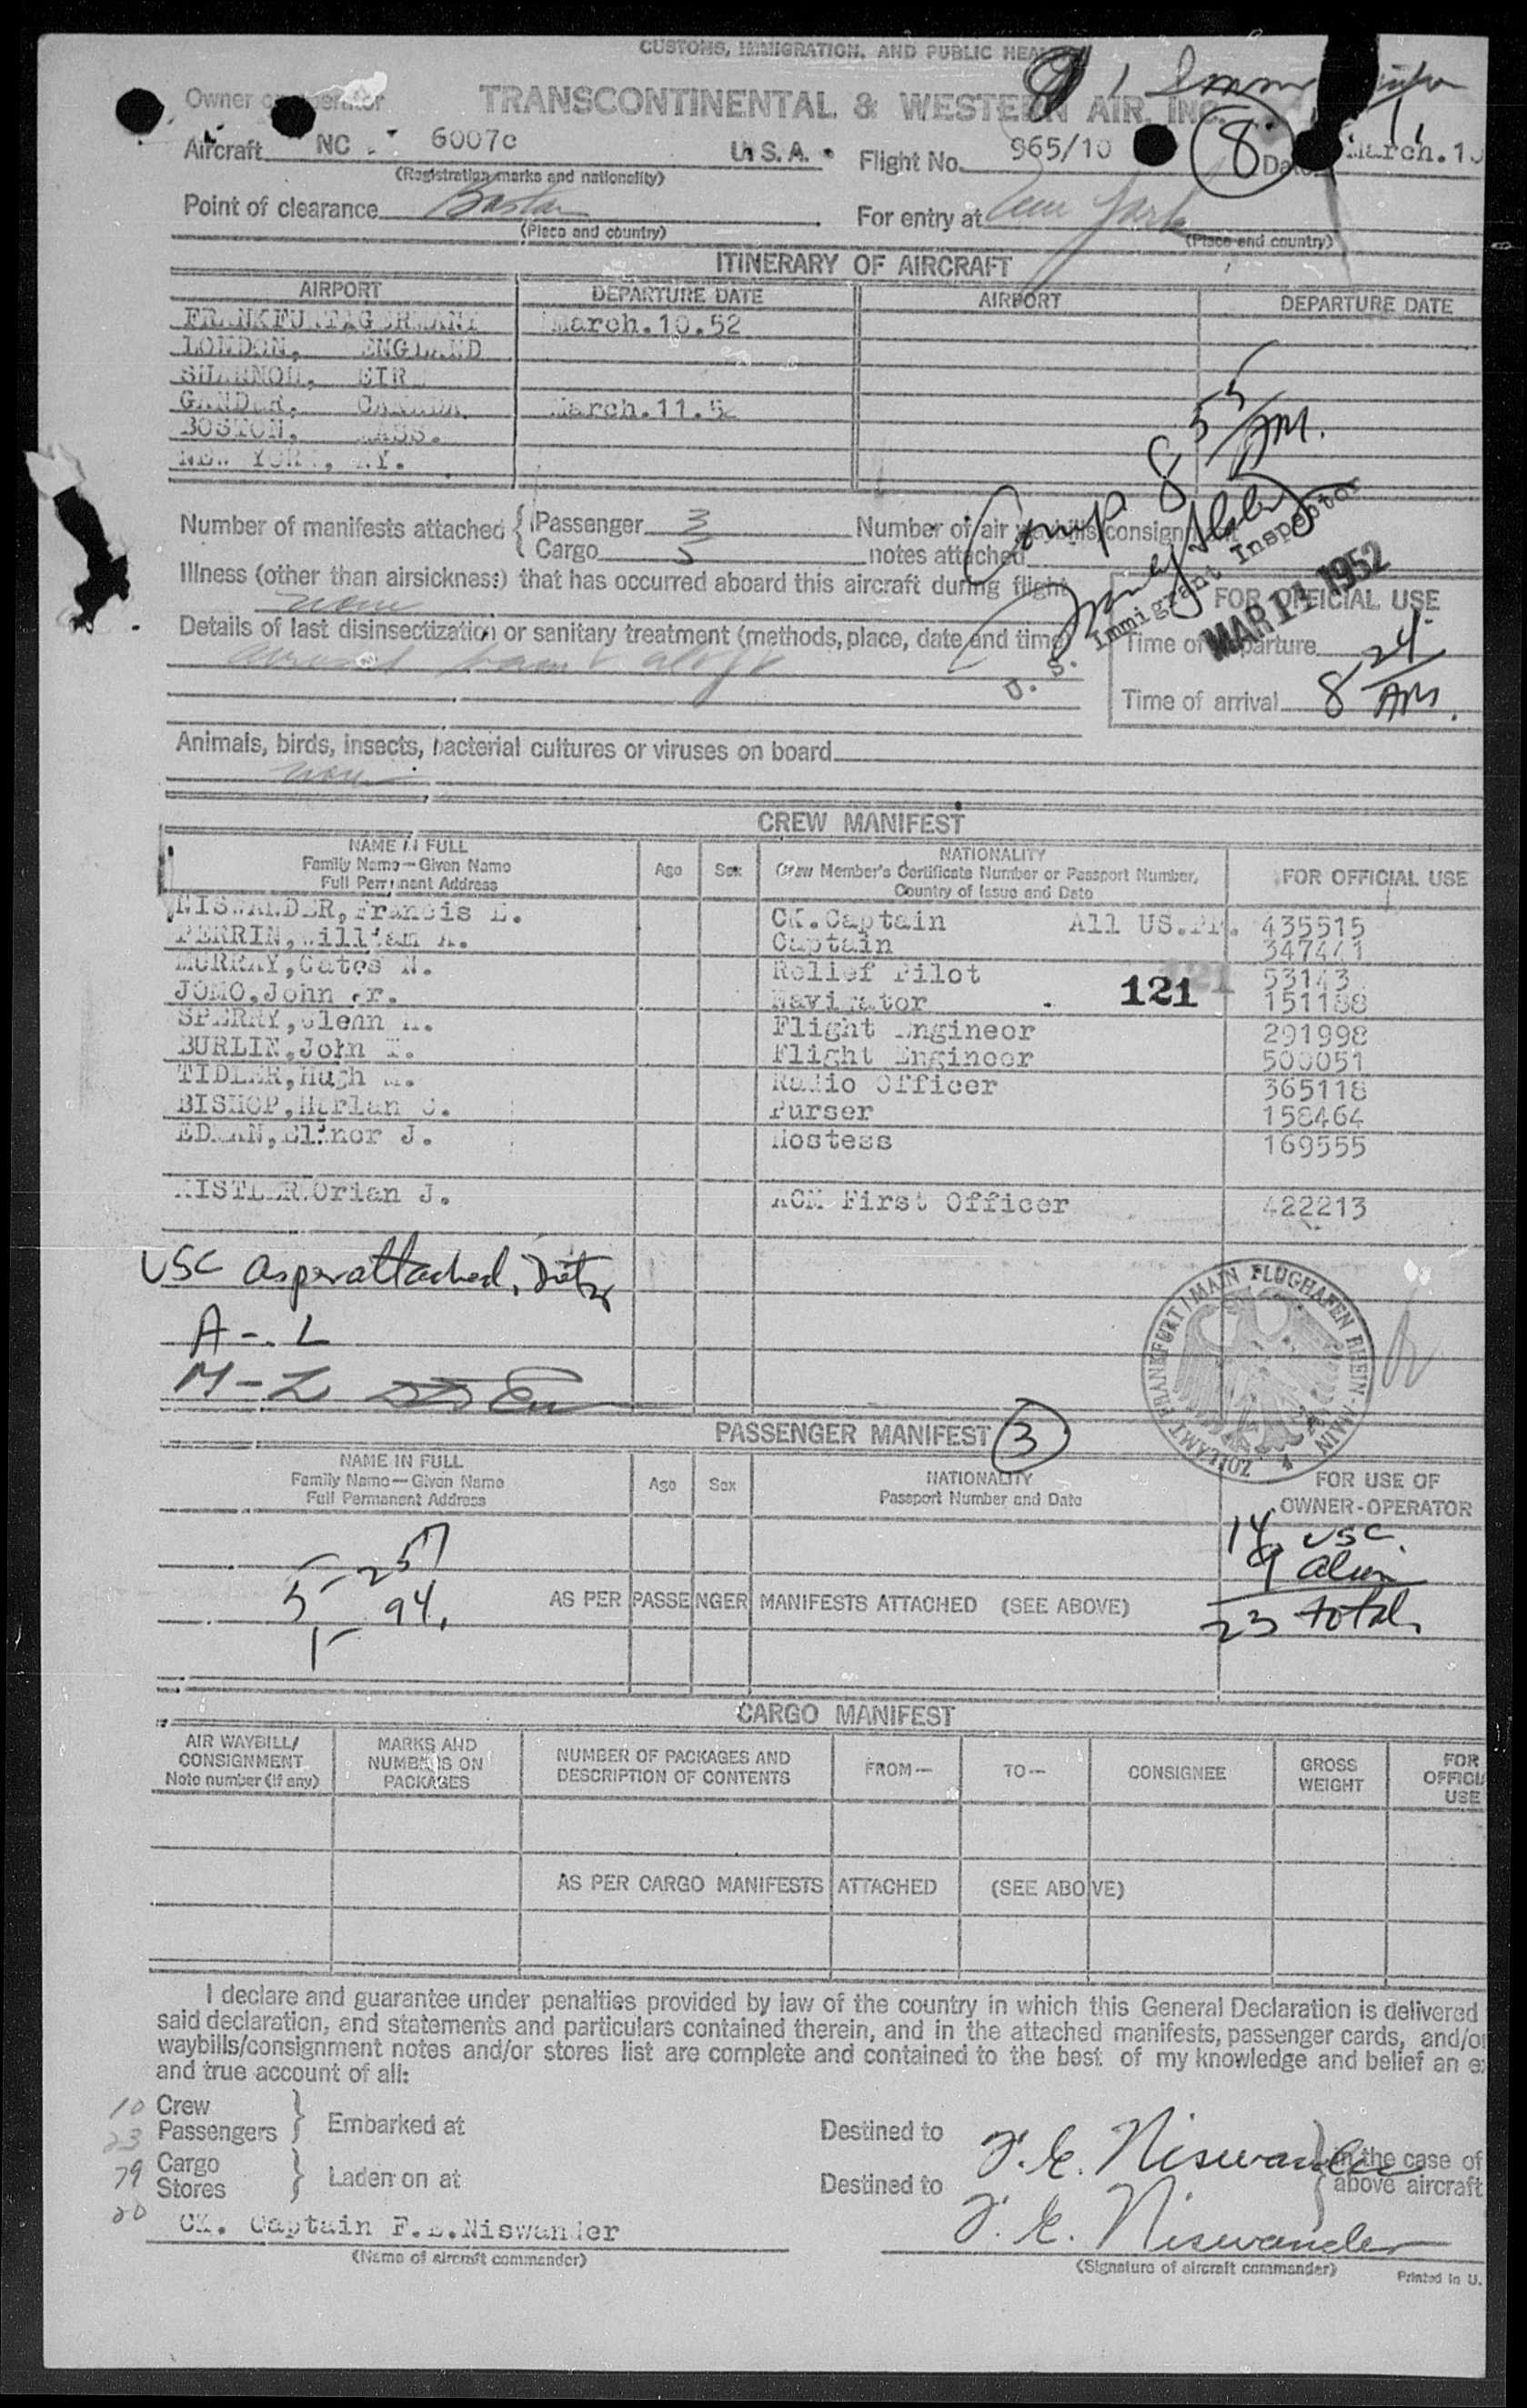 CUSTOMS, IMMIGRATION, AND PUBLIC HEA
Owner or operator TRANSCONTINENTAL & WESTERN AIR, INC.
Aircraft NC - 6007c U.S.A. Flight No. 965/10 (8) Date March.10
(Registration marks and nationality)
Point of clearance Boston For entry at New York
(Place and country) (Place and country)
ITINERARY OF AIRCRAFT
AIRPORT DEPARTURE DATE AIRPORT DEPARTURE DATE
FRANKFURT,GERMANY March.10.52
LONDON, ENGLAND
SHANNON, EIRE
GANDER, CANADA. March.11.52
BOSTON, MASS.
NEW YORK, NY.
Comp 8 55 AM.
Number of manifests attached { Passenger 3 Number of air waybills/consignment
Cargo 5 notes attached
U. S. Immigrant Inspector
Illness (other than airsickness) that has occurred aboard this aircraft during flight
none
FOR OFFICIAL USE
MAR 11 1952
Details of last disinsectization or sanitary treatment (methods, place, date and time)
Time of departure
Time of arrival 8 24 AM.
Animals, birds, insects, bacterial cultures or viruses on board
none
CREW MANIFEST
NAME IN FULL Age Sex NATIONALITY FOR OFFICIAL USE
Family Name—Given Name Crew Member's Certificate Number or Passport Number,
Full Permanent Address Country of Issue and Date
NISWANDER, Francis E. CK.Captain All US.PP. 435515
PERRIN, William A. Captain 347441
MURRAY, Gates N. Relief Pilot 53143
JOMO, John Jr. Navigator 121 151188
SPERRY, Glenn Flight Engineer 291998
BURLIN, John T. Flight Engineer 500051
TIDLER, Hugh Radio Officer 365118
BISHOP, Harlan Purser 158464
Elinor J. Hostess 169555
KISTLER Orian J. ACM First Officer 422213
USC as per attached,
A - L
M - Z
ZOLLAMT FRANKFURT/MAIN FLUGHAFEN RHEIN-MAIN
PASSENGER MANIFEST (3)
NAME IN FULL Age Sex NATIONALITY FOR USE OF
Family Name—Given Name Passport Number and Date OWNER-OPERATOR
Full Permanent Address
14 USC.
9 alien
5 94. AS PER PASSENGER MANIFESTS ATTACHED (SEE ABOVE)
23 total.
CARGO MANIFEST
AIR WAYBILL/ CONSIGNMENT Note number (if any) MARKS AND NUMBERS ON PACKAGES NUMBER OF PACKAGES AND DESCRIPTION OF CONTENTS FROM— TO— CONSIGNEE GROSS WEIGHT FOR OFFICIA USE
AS PER CARGO MANIFESTS ATTACHED (SEE ABOVE)
I declare and guarantee under penalties provided by law of the country in which this General Declaration is delivered
said declaration, and statements and particulars contained therein, and in the attached manifests, passenger cards, and/or
waybills/consignment notes and/or stores list are complete and contained to the best of my knowledge and belief an e
and true account of all:
10 Crew
23 Passengers } Embarked at Destined to
79 Cargo
20 Stores } Laden on at Destined to
F. E. Niswander } in the case of
above aircraft
CK. Captain F.E.Niswander F. E. Niswander
(Name of aircraft commander) (Signature of aircraft commander) Printed in U.